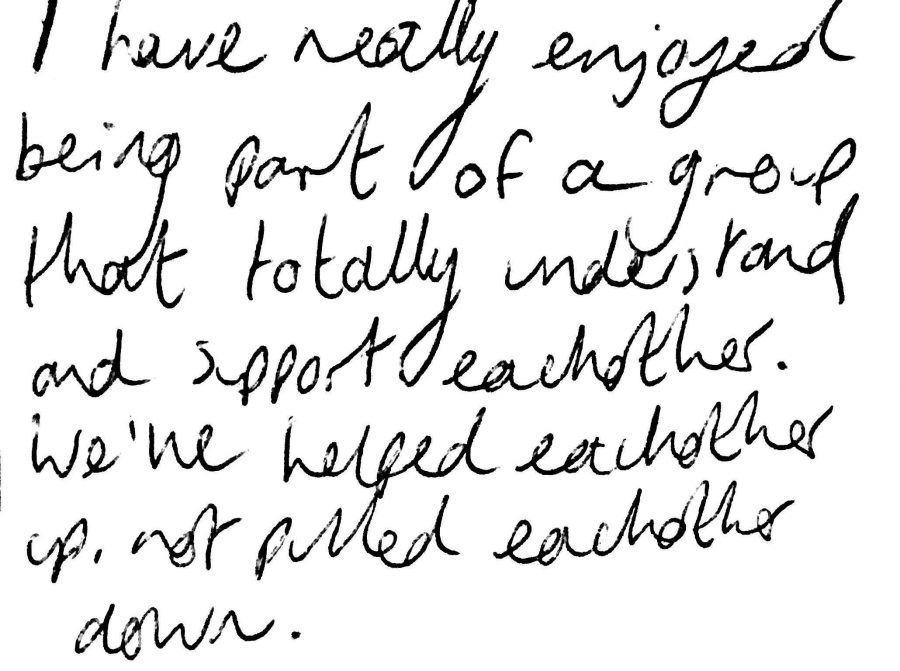 I have really enjoyed
being part of a group
that totally understand
and support eachother.
We've helped eachother
up, not pulled eachother
down.